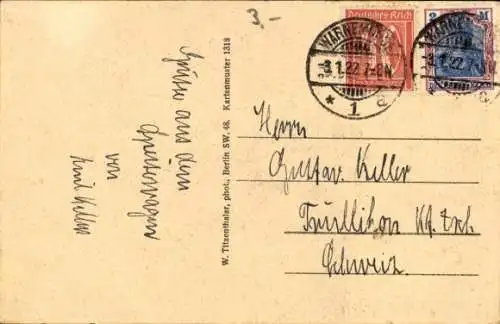 3.-
Deutsches Reich
2 M
WARNEMÜNDE
3.1.22.7-8N
* 1 a
3.1.22.7-8N
a
Grüsse aus dem
Speisewagen
von
Emil Keller
W. Titzenthaler, phot., Berlin SW. 48. Kartenmuster 1318
Herrn
Gustav Keller
Trüllikon Kt. Zch.
Schweiz.